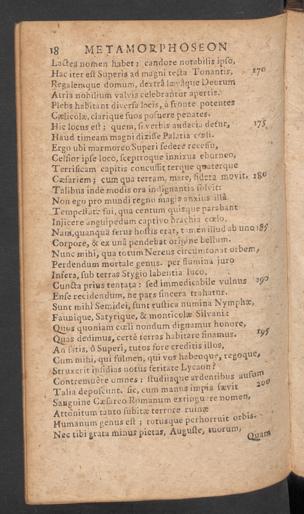 18 METAMORPHOSEON
Lactea nomen habet: candore notabilis ipso,
Hac iter est Superis ad magni tecta Tonantis, 170
Regalemque domum, dextra lævaque Deorum
Atria nobilium valvis celebrantur apertis.
Plebs habitant diversa locis, à fronte potentes
Cælicolæ, clarique suos posuere penates.
Hic locus est; quem, si verbis audacia detur, 175
Haud timeam magni dixisse Palatia cœli.
Ergo ubi marmoreo Superi sedere recessu,
Celsior ipse loco, sceptroque innixus eburneo,
Terrificam capitis concussit terque quaterque
Cæsariem; cum qua terram, mare, sidera movit. 180
Talibus inde modis ora indignantia solvit:
Non ego pro mundi regno magis anxius illâ
Tempestate fui, qua centum quisque parabant
Injicere anguipedum captivo brachia cœlo.
Nam, quanquam ferus hostis erat, tamen illud ab uno 185
Corpore, & ex unâ pendebat origine bellum.
Nunc mihi, qua totum Nereus circumtonat orbem,
Perdendum mortale genus. per flumina juro
Infera, sub terras Stygio labentia luco.
Cuncta prius tentata: sed immedicabile vulnus 190
Ense recidendum, ne pars sincera trahatur.
Sunt mihi Semidei, sunt rustica numina Nymphæ,
Faunique, Satyrique, & monticolæ Silvani:
Quos quoniam cœli nondum dignamur honore,
Quas dedimus, certè terras habitare sinamus. 195
An satis, ô Superi, tutos fore creditis illos,
Cum mihi, qui fulmen, qui vos habeoque, regoque,
Struxerit insidias notus feritate Lycaon?
Contremuêre omnes: studiisque ardentibus ausum
Talia deposcunt. sic, cum manus impia sævit 200
Sanguine Cæsareo Romanum extinguere nomen,
Attonitum tanto subitæ terrore ruinæ
Humanum genus est; totusque perhorruit orbis.
Nec tibi grata minus pietas, Auguste, tuorum,
Quam